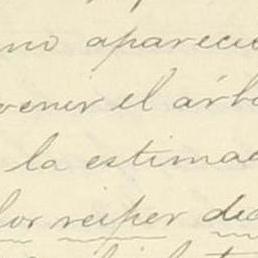 no aparecie
venir el árbo
la estimac
lor reiper dic